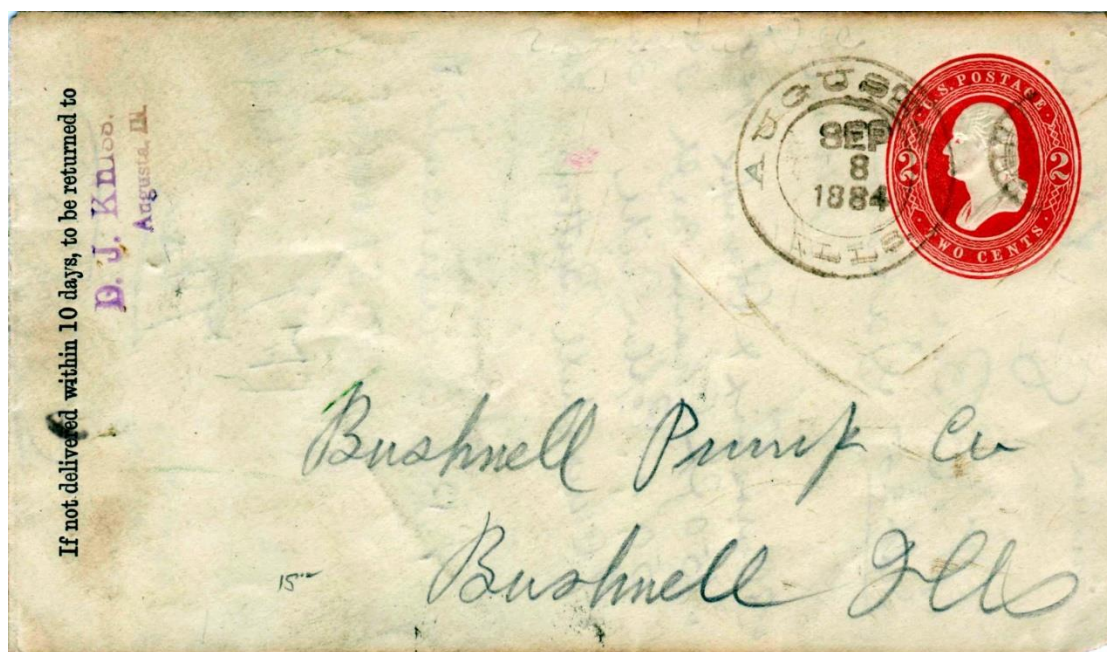 If not delivered within 10 days, to be returned to
D. J. Kniss.
Augusta, Ill.
AUGUSTA
SEP
8
1884
ILLS
U.S. POSTAGE
2 2
TWO CENTS
Bushnell Pump Co
Bushnell Ills